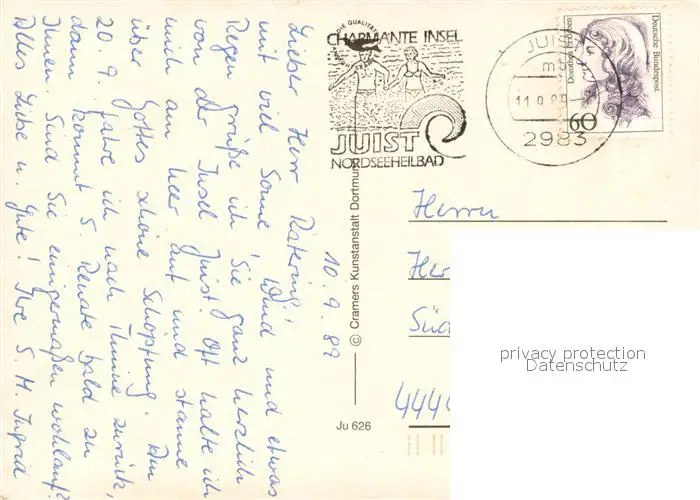 Lieber Herr Ratering!
mit viel Sonne, Wind und etwas
Regen grüße ich Sie ganz herzlich
von der Insel Juist! Oft halte ich
mich am Meer auf und staune
über Gottes schöne Schöpfung. Am
20. 9. fahre ich nach Thuine zurück,
dann kommt S. Renate bald zu
Ihnen. Sind Sie einigermaßen wohlauf?
Alles Liebe u. Gute! Ihre S. M. Ingrid
10. 9. 89
© Cramers Kunstanstalt Dortmund
Ju 626
DIE QUALITÄT
CHARMANTE INSEL
JUIST
NORDSEEHEILBAD
JUIST
mb
11.9.89
2983
Deutsche Bundespost
Dorothea Erxleben
60
Herrn
Her
Süd
4444
privacy protection
Datenschutz